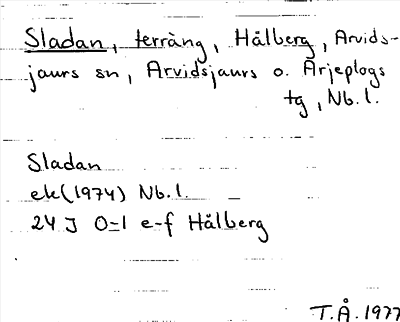 Sladan, terräng, Hålberg, Arvids-
jaurs sn, Arvidsjaurs o. Arjeplogs
tg, Nb. l.
Sladan
ek (1974) Nb. l. –
24 J 0-1 e-f Hålberg
T.Å. 1977